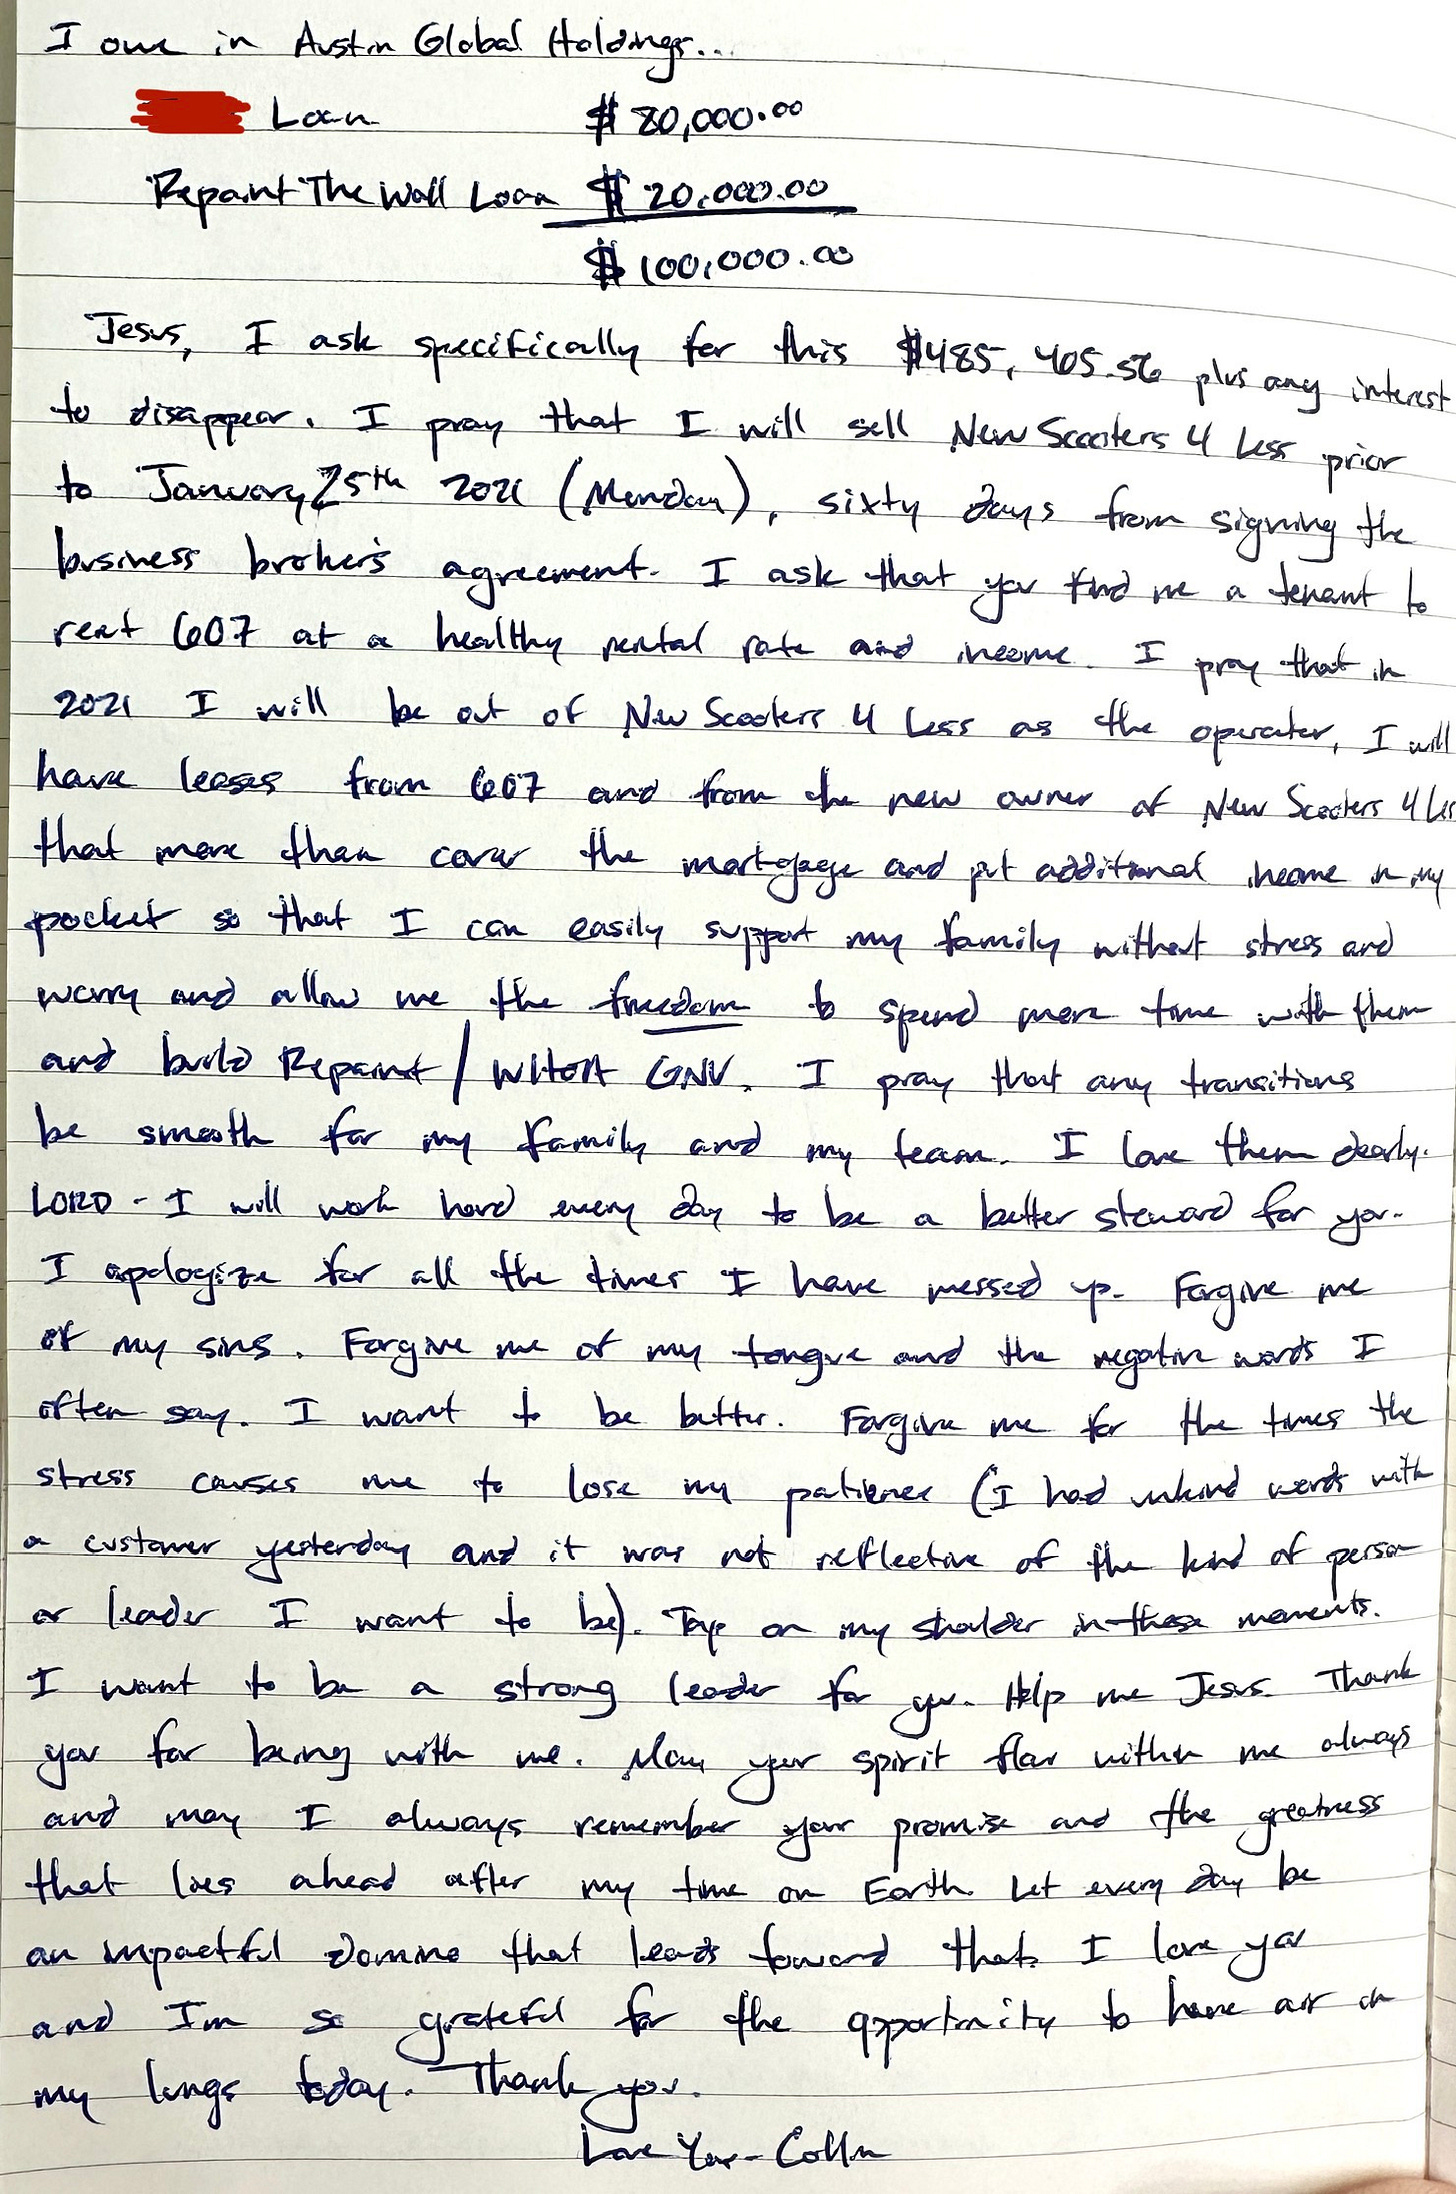 I owe in Austin Global Holdings...
Loan $ 80,000.00
Repaint The Wall Loan $ 20,000.00
$ 100,000.00
Jesus, I ask specifically for this $485,405.56 plus any interest
to disappear. I pray that I will sell New Scooters 4 Less prior
to January 25th 2021 (Monday), sixty days from signing the
business broker's agreement. I ask that you find me a tenant to
rent 607 at a healthy rental rate and income. I pray that in
2021 I will be out of New Scooters 4 Less as the operator, I will
have leases from 607 and from the new owner of New Scooters 4 Less
that more than cover the mortgage and put additional income in my
pocket so that I can easily support my family without stress and
worry and allow me the freedom to spend more time with them
and build Repaint / WHOA GNV. I pray that any transitions
be smooth for my family and my team. I love them dearly.
LORD - I will work hard every day to be a better steward for you.
I apologize for all the times I have messed up. Forgive me
of my sins. Forgive me of my tongue and the negative words I
often say. I want to be better. Forgive me for the times the
stress causes me to lose my patience (I had unkind words with
a customer yesterday and it was not reflective of the kind of person
or leader I want to be). Tap on my shoulder in these moments.
I want to be a strong leader for you. Help me Jesus. Thank
you for being with me. May your spirit flow within me always
and may I always remember your promise and the greatness
that lies ahead after my time on Earth. Let every day be
an impactful domino that leads toward that. I love you
and I'm so grateful for the opportunity to have air in
my lungs today. Thank you.
Love You - Collin